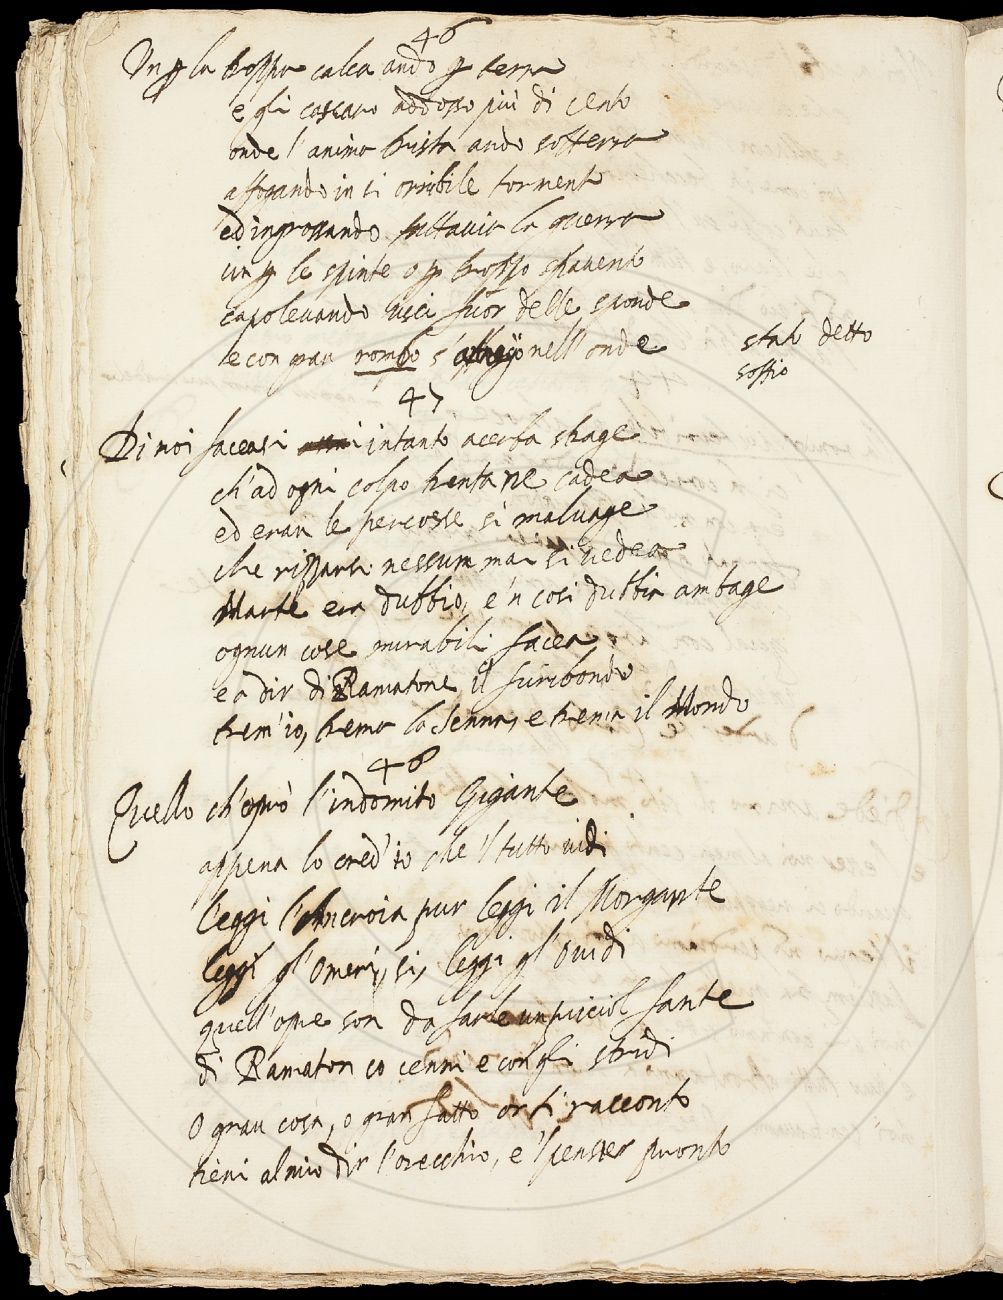 46
Un p la troppa calca andò p terra
e gli cascaro addosso più di cento
onde l'anima trista andò sotterra
affogando in sì orribile tormento
ed ingrossando tuttavia la guerra
un p le spinte o p troppo spavento
capolevando uscì fuor delle sponde
e con gran rombo s' nell'onde
stato detto
soffio
47
Di noi faceasi intanto acerba strage
ch'ad ogni colpo trenta ne cadea
ed eran le percosse sì malvage
che rizzarsi nessun mai si vedea
Marte era dubbio, e 'n così dubbia ambage
ognun cose mirabili facea
e a dir di Ramatone il furibondo
trem'io, trema la Senna, e trema il Mondo
48
Quello ch'oprò l'indomito Gigante
appena lo cred'io che 'l tutto vidi
leggi l'Ancroia pur leggi il Morgante
leggi gl'Omeri, si, leggi gl'Ovidi
quell'opre son da farle un picciol fante
di Ramaton co cenni e con gli stridi
o gran cosa, o gran fatto or ti racconto
tieni al mio dir l'orecchio, e 'l pensier pronto